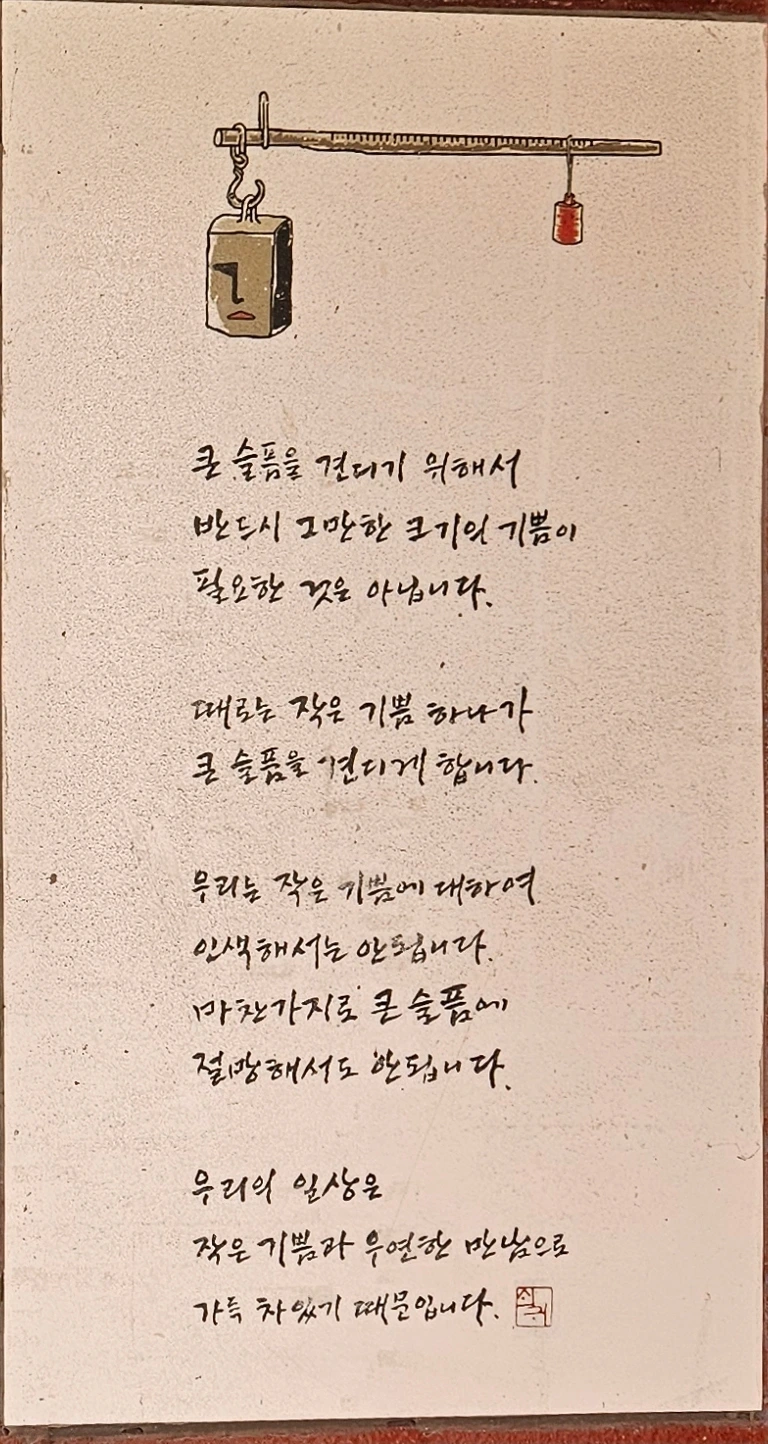 큰 슬픔을 견디기 위해서
반드시 그만한 크기의 기쁨이
필요한 것은 아닙니다.
때로는 작은 기쁨 하나가
큰 슬픔을 견디게 합니다.
우리는 작은 기쁨에 대하여
인색해서는 안됩니다.
마찬가지로 큰 슬픔에
절망해서도 안됩니다.
우리의 일상은
작은 기쁨과 우연한 만남으로
가득 차있기 때문입니다.